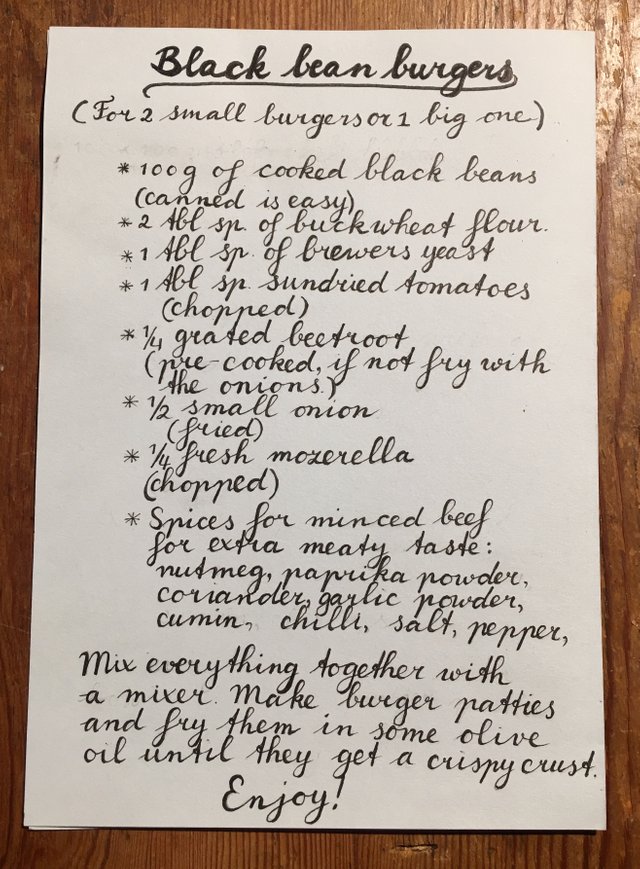 Black bean burgers
(For 2 small burgers or 1 big one)
* 100g of cooked black beans
(canned is easy)
* 2 tbl sp. of buckwheat flour.
* 1 tbl sp. of brewers yeast
* 1 tbl sp. sundried tomatoes
(chopped)
* 1/4 grated beetroot
(pre-cooked, if not fry with
the onions.)
* 1/2 small onion
(fried)
* 1/4 fresh mozerella
(chopped)
* Spices for minced beef
for extra meaty taste:
nutmeg, paprika powder,
coriander, garlic powder,
cumin, chilli, salt, pepper,
Mix everything together with
a mixer. Make burger patties
and fry them in some olive
oil until they get a crispy crust.
Enjoy!